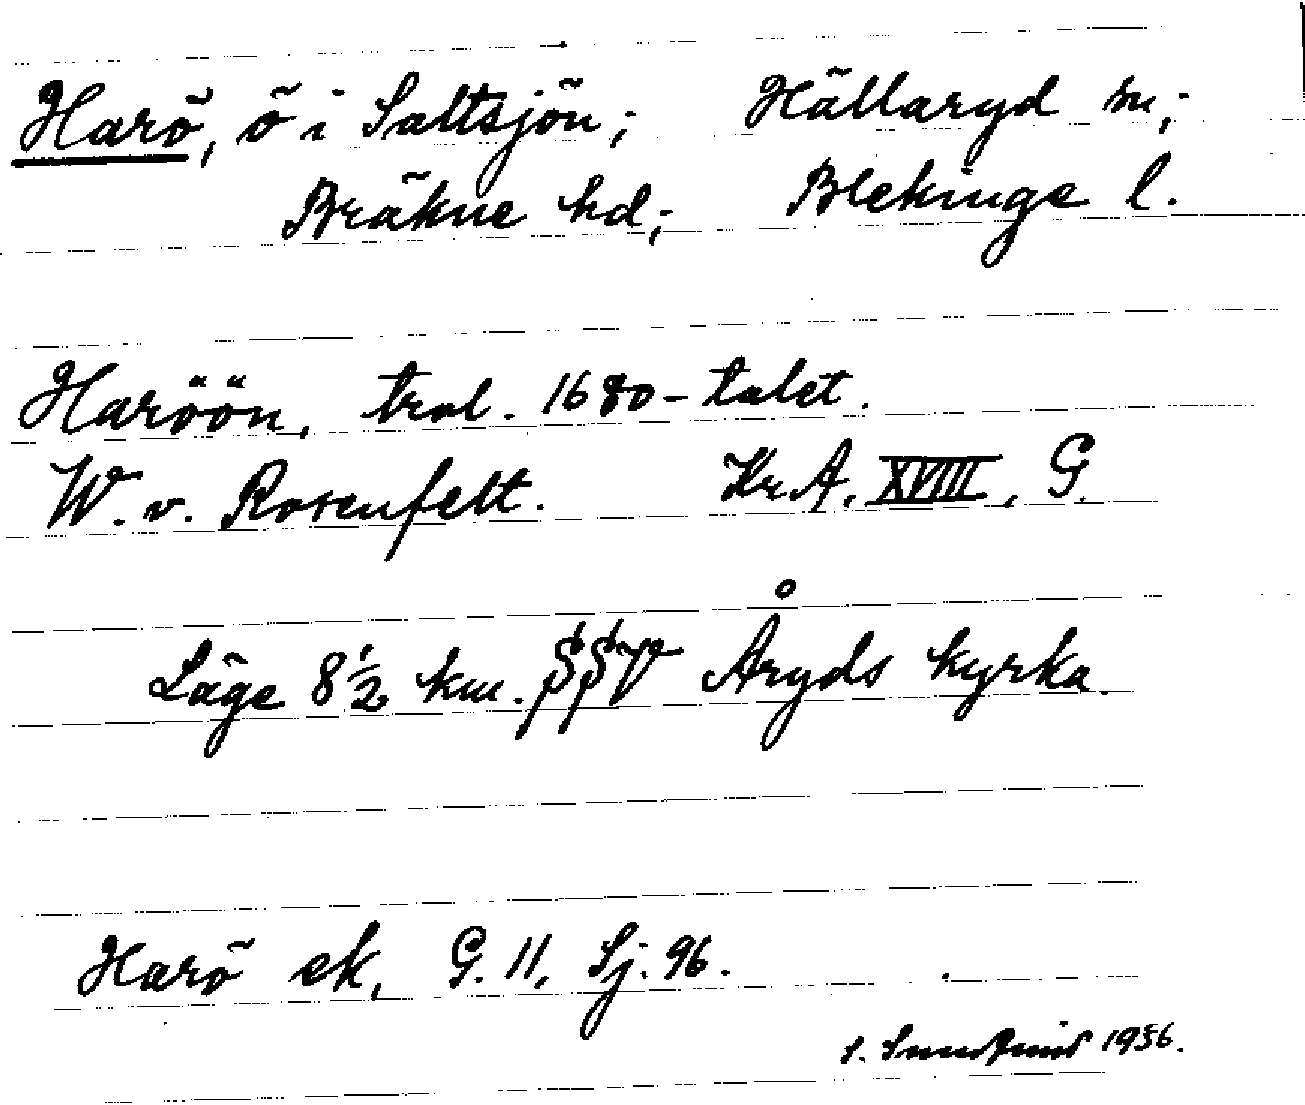 Harö, ö i Saltsjön; Hällaryd sn;
Bräkne hd; Blekinge l.
Haröön, trol. 1680-talet.
W. v. Rosenfelt. Kr.A, XVIII, G.
Läge 8 1/2 km. SSV Åryds kyrka.
Harö ek, G. 11, Sj. 96.
1956.